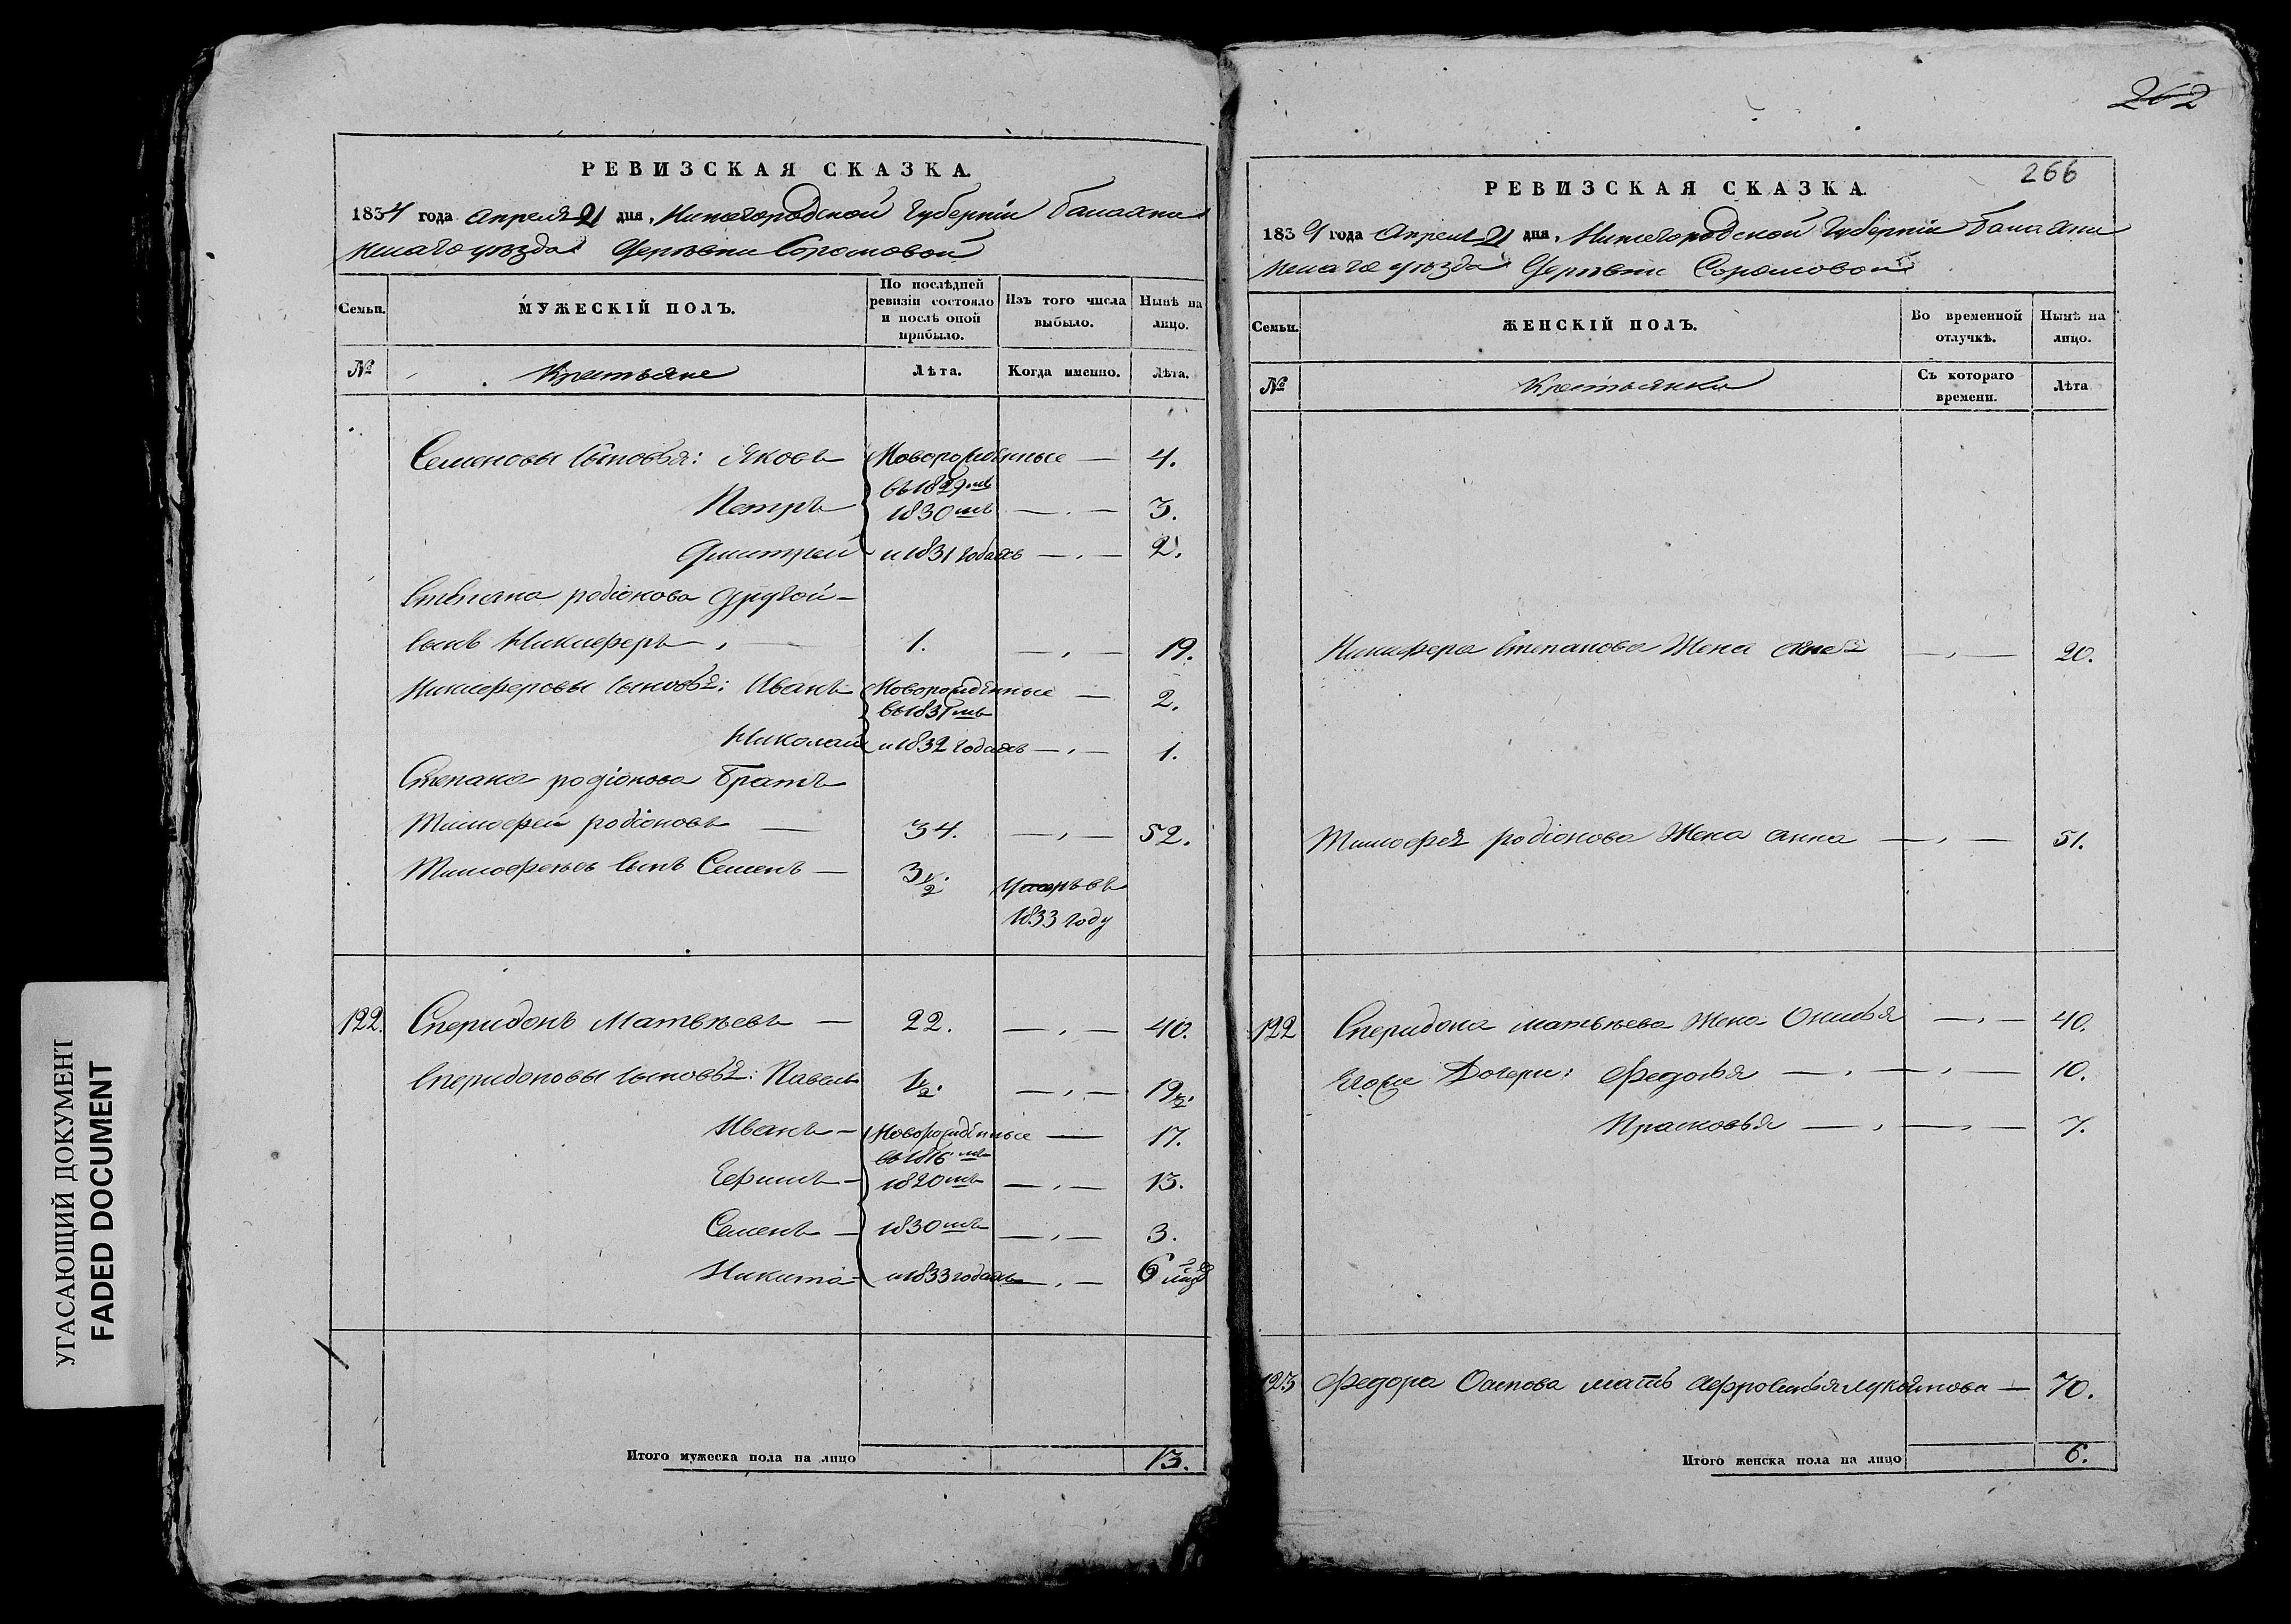 262
266
РЕВИЗСКАЯ СКАЗКА.
1834 года Апреля 21 дня, Нижегородской Губерніи Балахнин
скаго уѣзда Деревни Сормовой
Семьи.
МУЖЕСКІЙ ПОЛЪ.
По послѣдней ревизіи состояло и послѣ оной прибыло.
Изъ того числа выбыло.
Нынѣ на лицо.
№
Крестьяне
Лѣта.
Когда именно.
Лѣта.
Семеновы сыновья: Яковъ Новорожденные — 4.
въ 1829мъ
Петръ 1830мъ — 3.
Дмитрей и 1831 годахъ — 2.
Степана родіонова другой
сынъ Никиферъ — 1. — 19.
Никиферовы сыновья: Иванъ Новорожденные — 2.
въ 1831мъ
Николай и 1832 годахъ — 1.
Степана родіонова Братъ
Тимофей родіоновъ — 34. — 52.
Тимофеевъ сынъ Семенъ — 3½. умеръ въ
1833 году
122. Сперидонъ Матвѣевъ — 22. — 40.
Сперидоновы сыновья: Павелъ 1½. — 19½.
Иванъ — Новорожденные — 17.
въ 1816мъ
Ефимъ — 1820мъ — 13.
Семенъ — 1830мъ — 3.
Никита — и 1833 годахъ — 6
Итого мужеска пола на лицо 13.
РЕВИЗСКАЯ СКАЗКА.
1834 года Апреля 21 дня, Нижегородской Губерніи Балахнин
скаго уѣзда Деревни Сормовой
Семьи.
ЖЕНСКІЙ ПОЛЪ.
Во временной отлучкѣ.
Нынѣ на лицо.
№
Крестьянки
Съ котораго времени.
Лѣта
Никифера Степанова Жена — 20.
Тимофея родіонова Жена Анна — 51.
122 Сперидона матвѣева Жена — 40.
Егоже Дочери: Федосья — 10.
Прасковья — 7.
123 Федора Осипова мать Афросинья — 70.
Итого женска пола на лицо 6.
УГАСАЮЩИЙ ДОКУМЕНТ
FADED DOCUMENT